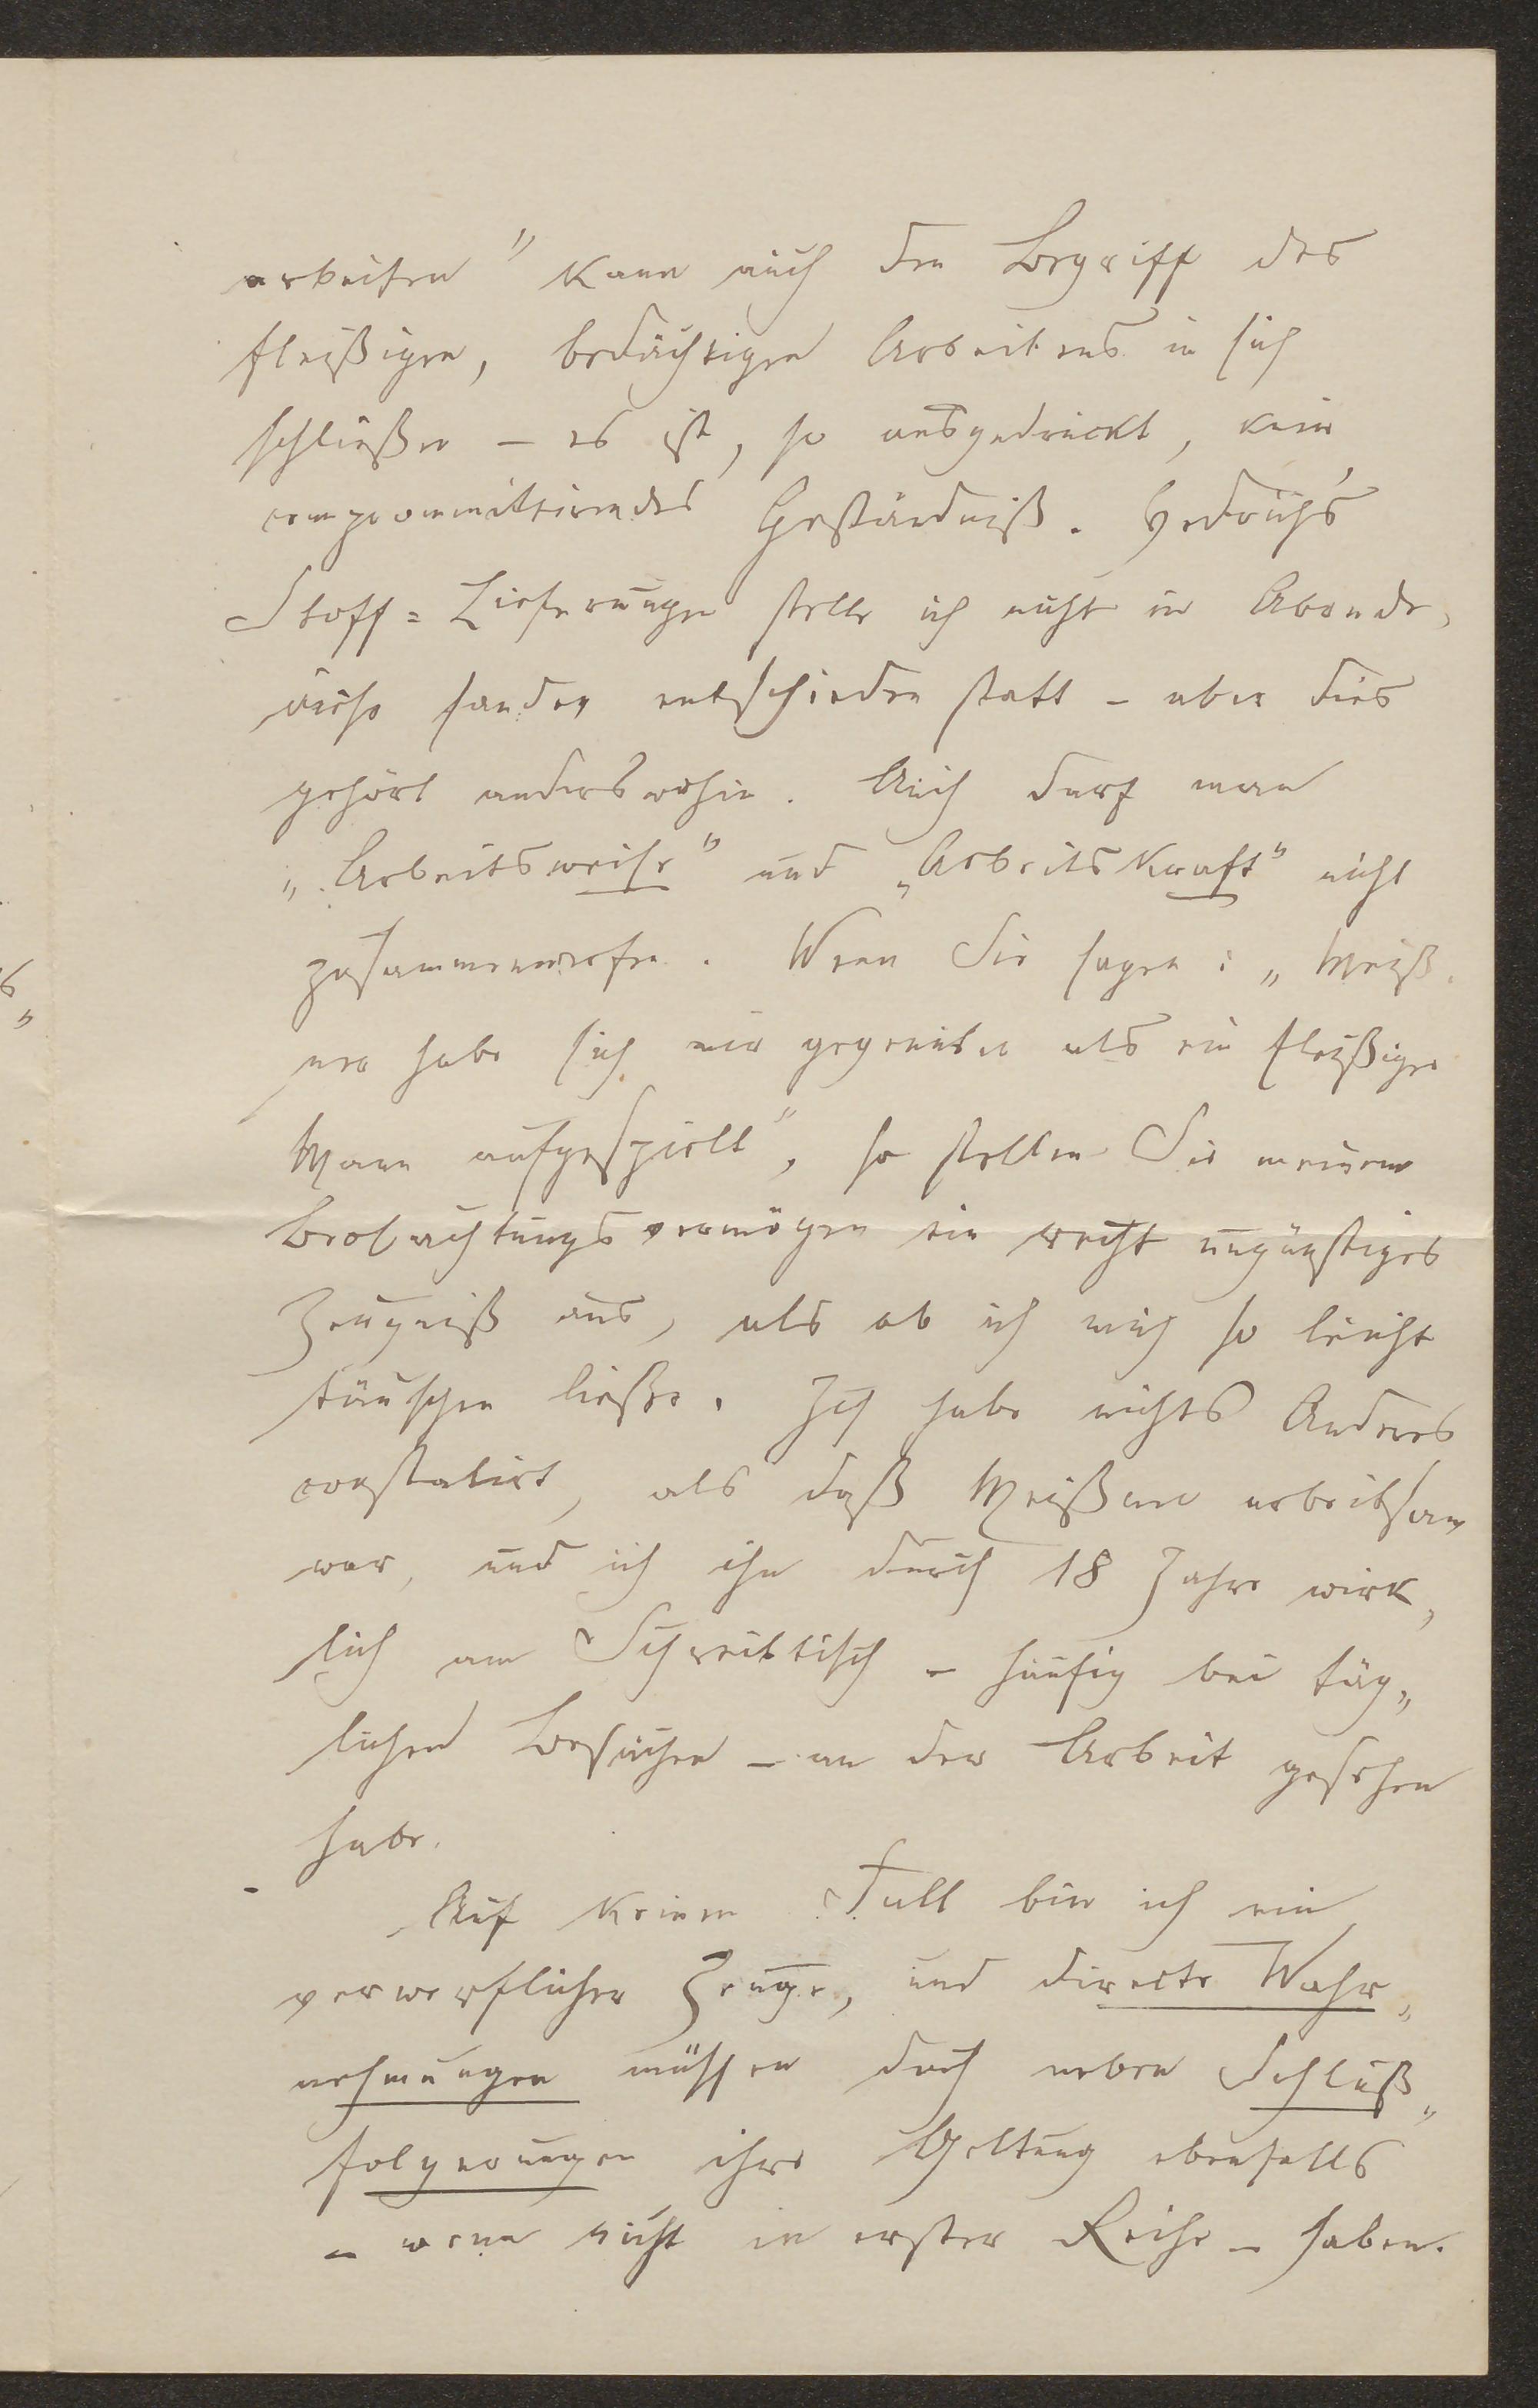 arbeiten" kann auch den Begriff des
fleißigen, bedächtigen Arbeitens in sich
schließen – es ist, so ausgedrückt, kein
compromittirendes Geständniß. Hedrich's
Stoff=Lieferungen stelle ich nicht in Abrede,
diese fanden entschieden statt – aber dies
gehört anderswohin. Auch darf man
„Arbeitsweise" und „Arbeitskraft" nicht
zusammenwerfen. Wenn Sie sagen: „Meiß-
ner habe sich mir gegenüber als ein fleißiger
Mann aufgespielt", so stellen Sie meinem
Beobachtungsvermögen ein recht ungünstiges
Zeugniß aus, als ob ich mich so leicht
täuschen ließe. Ich habe nichts Anderes
constatirt, als daß Meißner arbeitsam
war, und ich ihn durch 18 Jahre wirk,
lich am Schreibtisch – häufig bei täg„
lichen Besuchen – an der Arbeit gesehen
habe.
Auf keinen Fall bin ich ein
verwerflicher Zeuge, und directe Wahr„
nehmungen müssen doch neben Schluß„
folgerungen ihre Geltung ebenfalls
– wenn nicht in erster Reihe – haben.